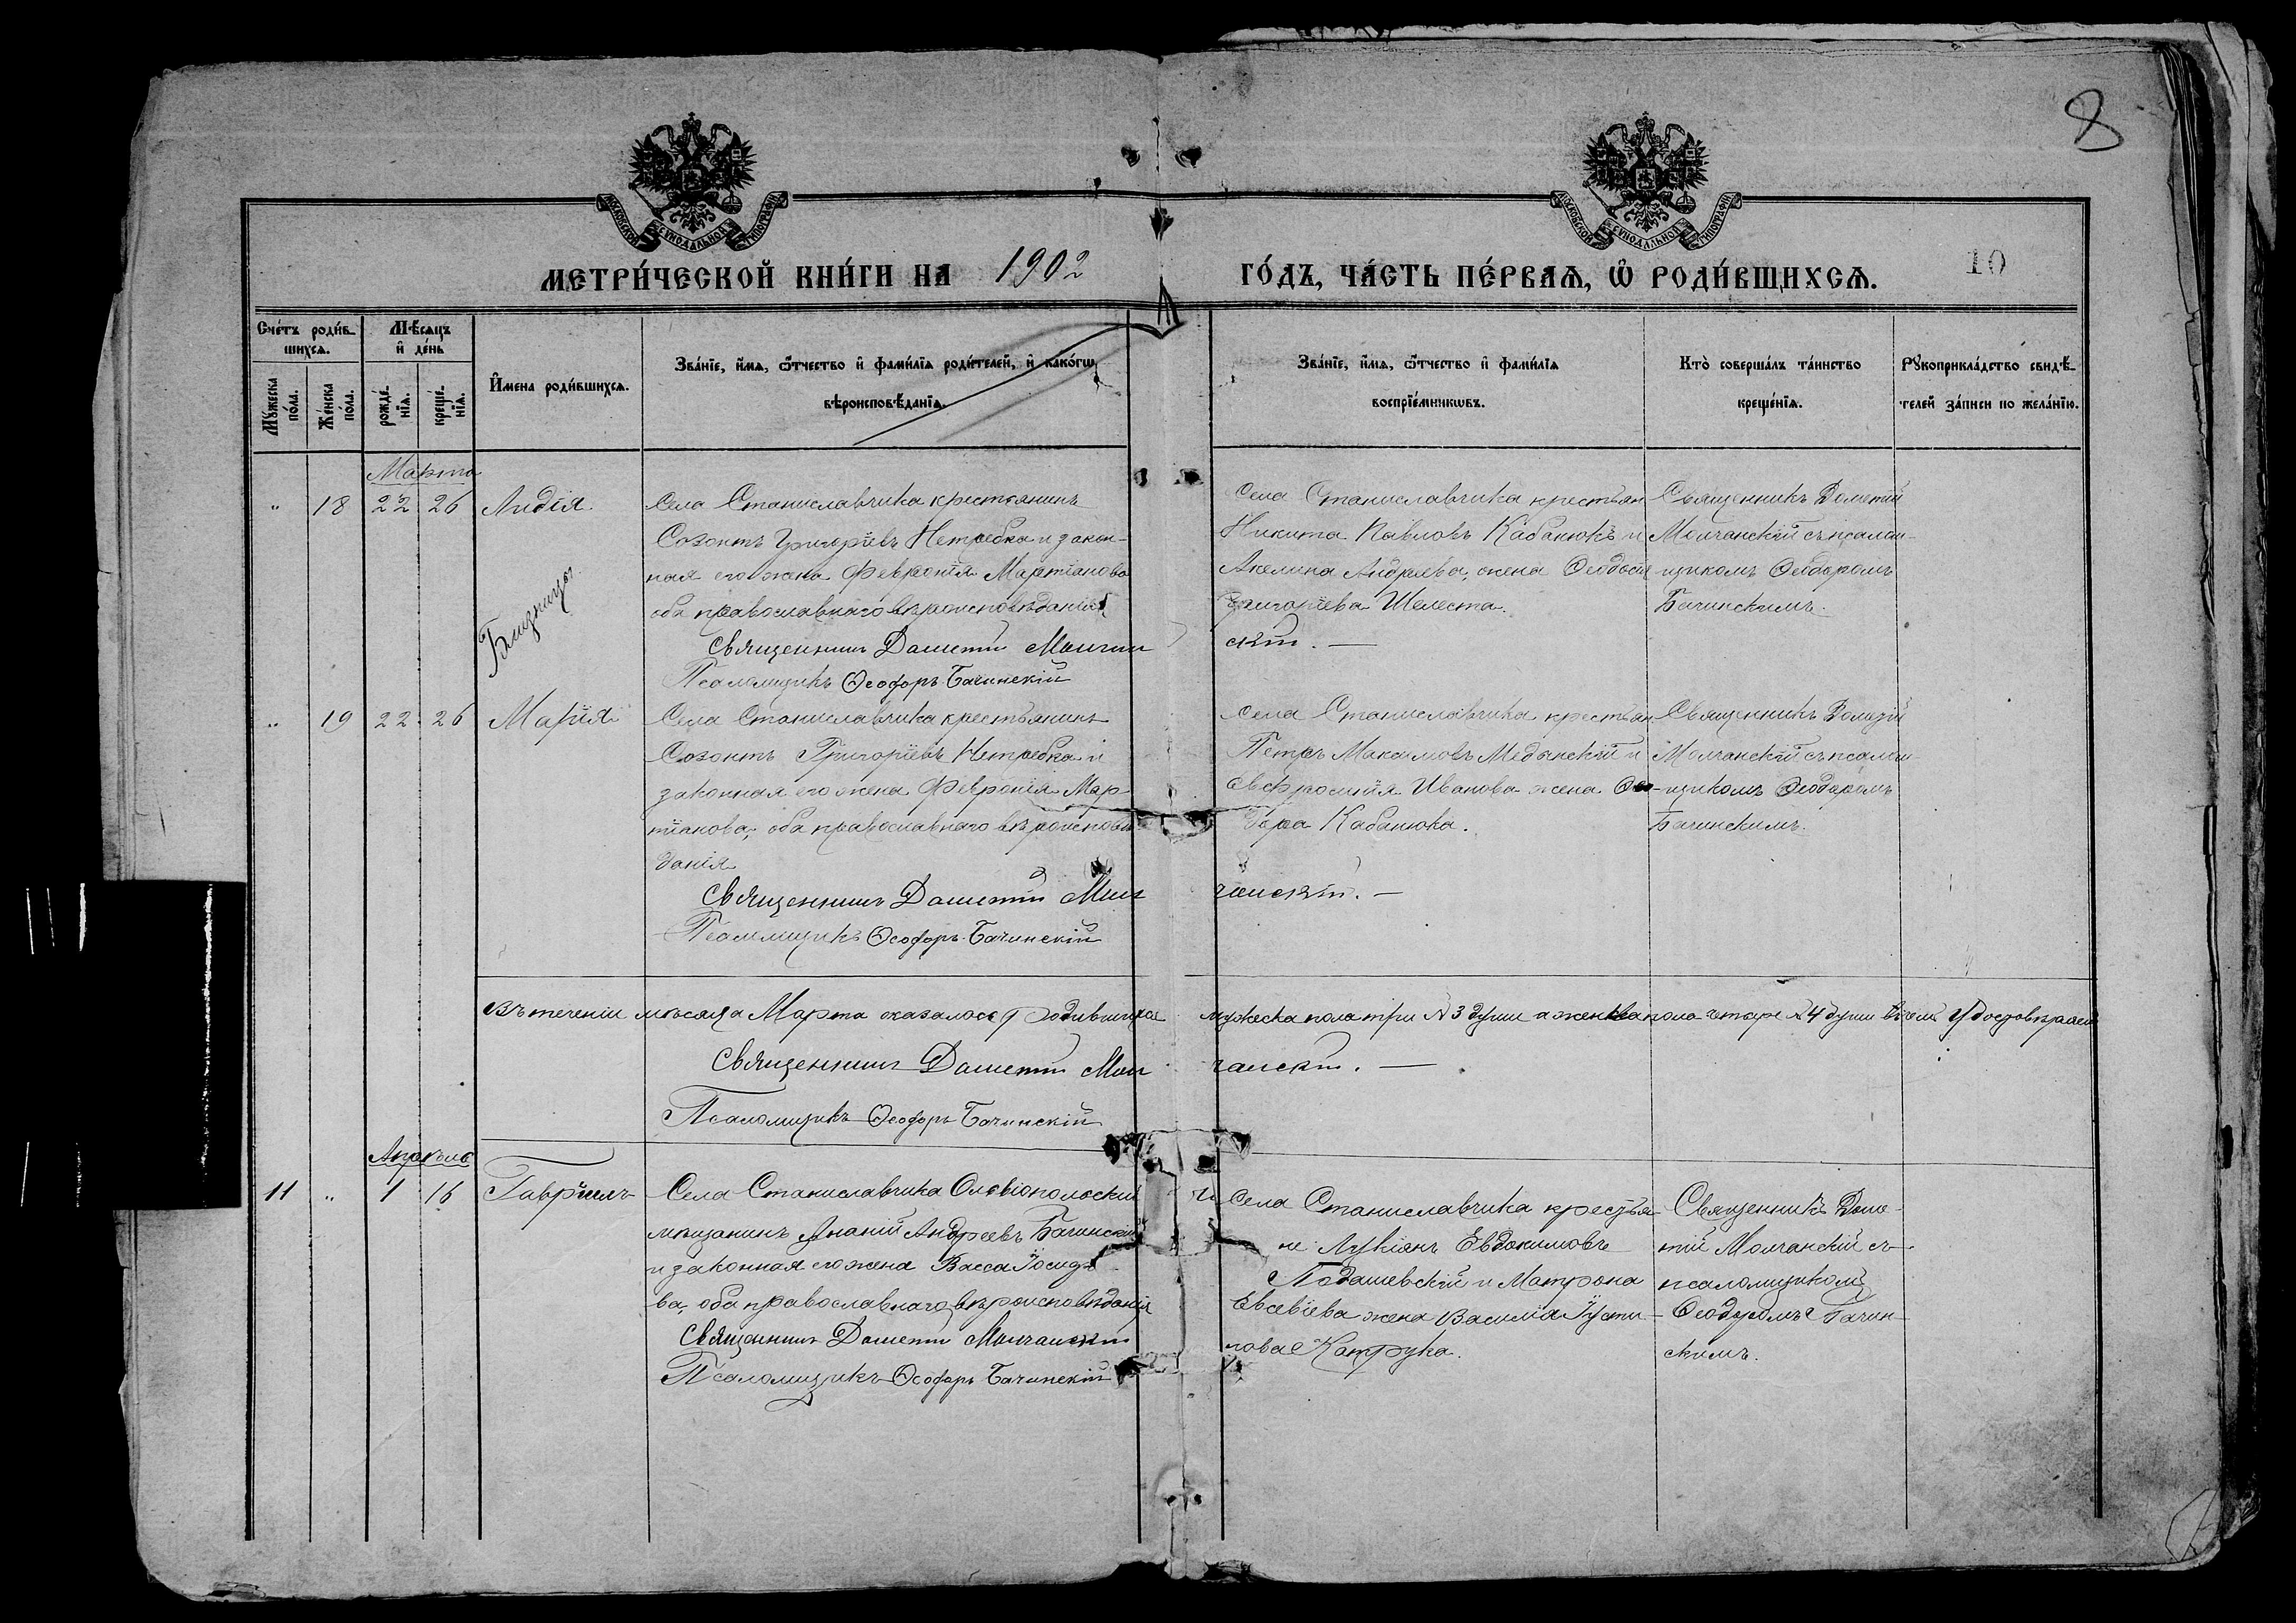 8
МОСКОВСКОЙ СѴНОДАЛЬНОЙ ТИПОГРАФІИ
МОСКОВСКОЙ СѴНОДАЛЬНОЙ ТИПОГРАФІИ
МЕТРИ́ЧЕСКОЙ КНИ́ГИ НА 1902 ГО́ДЪ, ЧА́СТЬ ПЕ́РВАѦ, Ѡ҆ РОДИ́ВШИХСѦ.
10
Сче́тъ роди́в-
шихсѧ.
Мꙋ́жеска
по́ла.
Же́нска
по́ла.
Мѣ́сѧцъ
и҆ де́нь
рожде́-
нїѧ.
креще́-
нїѧ.
И҆мена роди́вшихсѧ.
Зва́нїе, и҆́мѧ, ѻ҆́тчество и҆ фами́лїѧ роди́телей, и҆ како́гѡ
вѣроисповѣ́данїѧ.
Зва́нїе, и҆́мѧ, ѻ҆́тчество и҆ фами́лїѧ
воспрїе́мникѡвъ.
Кто̀ соверша́лъ та́инство
креще́нїѧ.
Рꙋкоприкла́дство свидѣ́-
телей за́писи по жела́нїю.
Марта
" 18 22 26 Лидія.
Близницы
Села Станиславчика крестьянинъ
Созонтъ Григоріевъ Нетребка и закон-
ная его жена Февронія Мартіанова
оба православнаго вѣроисповѣданія
Священникъ Дометій Молчанскій. —
Псаломщикъ Ѳеодоръ Бачинскій
Села Станиславчика крестьян
Никита Павловъ Кабанюкъ и
Акелина Андреева, жена Ѳеодосія
Григоріева Шелеста.
Священникъ Дометій
Молчанскій съ псалом-
щикомъ Ѳеодоромъ
Бачинскимъ.
" 19 22 26 Марія
Села Станиславчика крестьянинъ
Созонтъ Григоріевъ Нетребка и
законная его жена Февронія Мар-
тіанова, оба православнаго вѣроисповѣ
данія
Священникъ Дометій Молчанскій. —
Псаломщикъ Ѳеодоръ Бачинскій
Села Станиславчика крестьян
Петръ Макаимовъ Медынскій и
Евфросинія Иванова жена Ѳео-
дора Кабанюка.
Священникъ Дометій
Молчанскій съ псалом-
щикомъ Ѳеодоромъ
Бачинскимъ.
Въ теченіи мѣсяца Марта оказалось родившихся мужеска пола три № 3 души а женска пола четыре № 4 души въ чемъ удостовѣряемъ
Священникъ Дометій Молчанскій. —
Псаломщикъ Ѳеодоръ Бачинскій
Апрѣль
11 " 1 16 Гавріилъ
Села Станиславчика Ольвіопольскій
мѣщанинъ Ананій Андреевъ Бачинскій
и законная его жена Васса Іосифо
ва, оба православнаго вѣроисповѣданія
Священникъ Дометій Молчанскій
Псаломщикъ Ѳеодоръ Бачинскій
Села Станиславчика крестья-
не Лукіянъ Евдокимовъ
Подашевскій и Матрона
Евсевіева жена Василія Іусти-
нова Катрука.
Священникъ Доме-
тій Молчанскій съ
псаломщикомъ
Ѳеодоромъ Бачин-
скимъ.